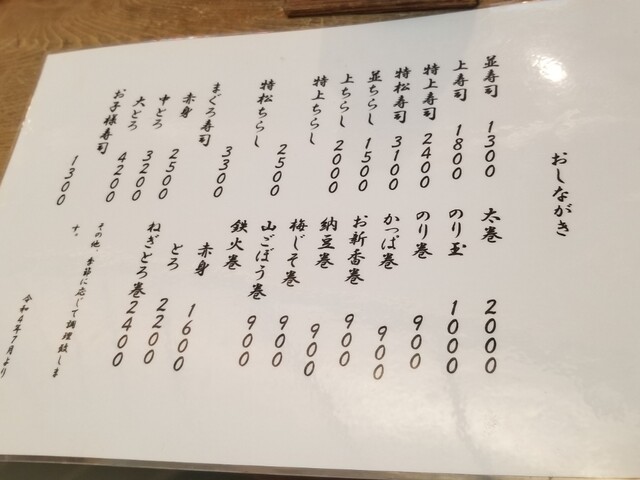 おしながき
並寿司 1300
上寿司 1800
特上寿司 2400
特松寿司 3100
並ちらし 1500
上ちらし 2000
特上ちらし
2500
特松ちらし
3300
まぐろ寿司
赤身 2500
中とろ 3200
大とろ 4200
お子様寿司
1300
太巻 2000
のり玉 1000
のり巻 900
かっぱ巻 900
お新香巻 900
納豆巻 900
梅じそ巻 900
山ごぼう巻 900
鉄火巻
赤身 1600
とろ 2200
ねぎとろ巻2400
その他、季節に応じて調理致しま
す。
令和4年7月より